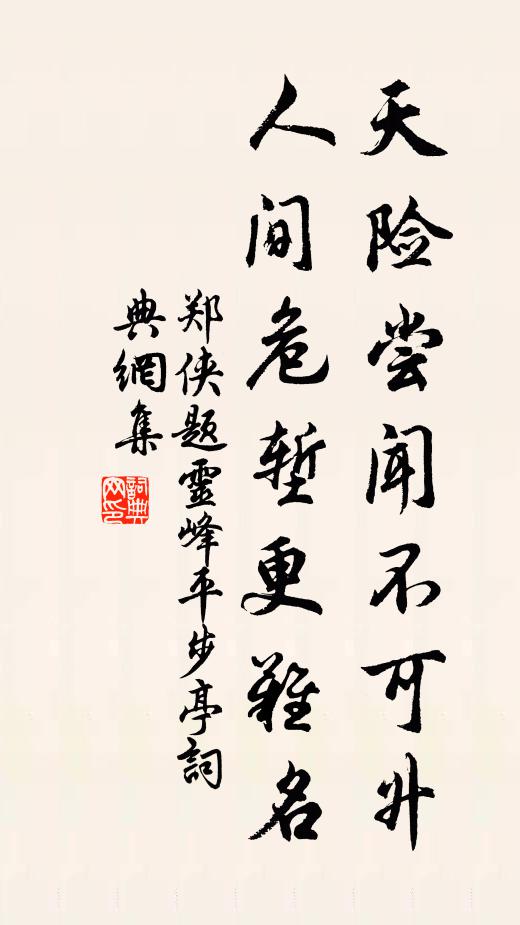 天险尝闻不可升
人间危堑更难名
郑侠题靈峰平步亭詞
典網集
詞典网印